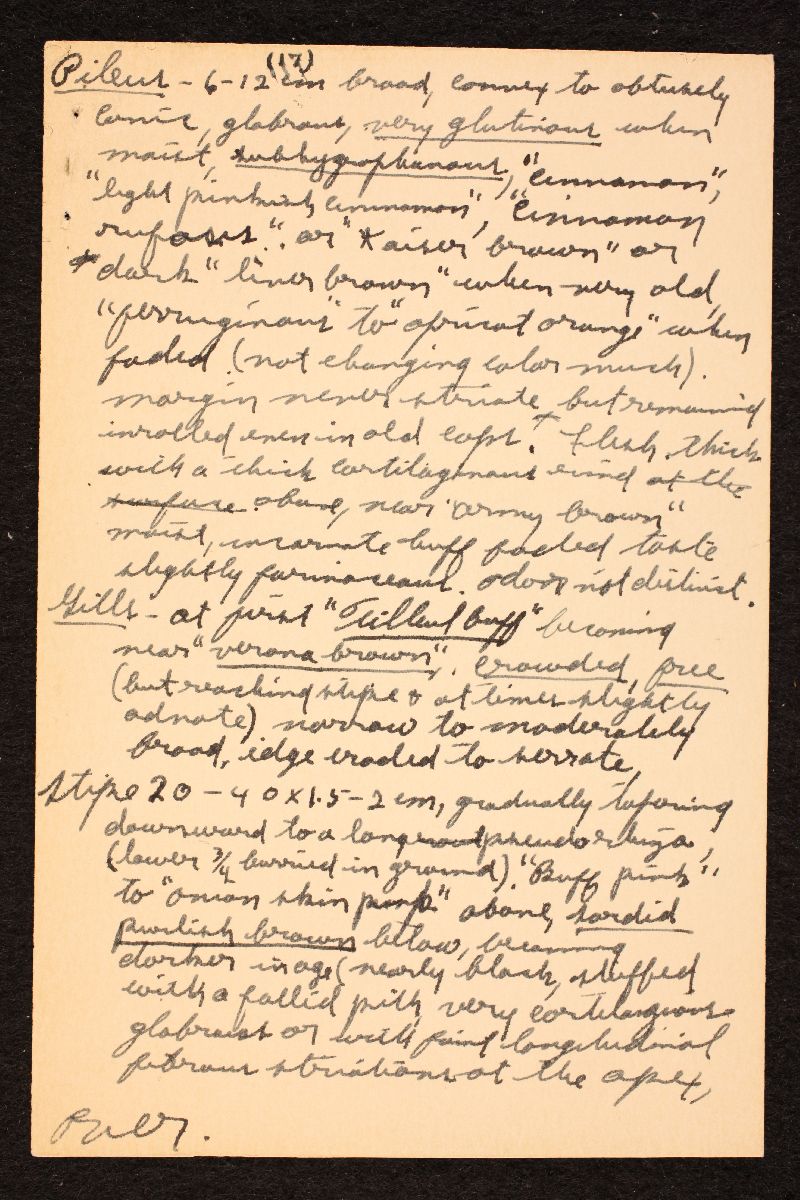 (17)
Pileus - 6-12 cm broad, convex to obtusely
conic, glabrous, very glutinous when
moist, subhygrophanous, "cinnamon",
"light pinkish cinnamon", "Cinnamon
rufous". or "Kaiser brown" or
dark "liver brown" when very old,
"ferruginous" to "apricot orange" when
faded (not changing color much).
margin never striate, but remained
inrolled even in old caps. Flesh thick
with a thick cartilaginous rind at the
surface above, near "army brown"
moist, incarnate buff faded taste
slightly farinaceous. odor not distinct.
Gills - at first "Tilleul buff" becoming
near "verona brown", crowded, free
(but reaching stipe & at times slightly
adnate) narrow to moderately
broad, edge eroded to serrate,
Stipe 20 - 40 x 1.5 - 2 cm, gradually tapering
downward to a long pseudorhiza,
(lower 3/4 burried in ground). "Buff pink"
to "onion skin pink" above, sordid
purlish brown below, becoming
darker in age (nearly black, stuffed
with a pallid pith, very cartilagious
glabrous or with faint longitudinal
fibrous striations at the apex,
over.